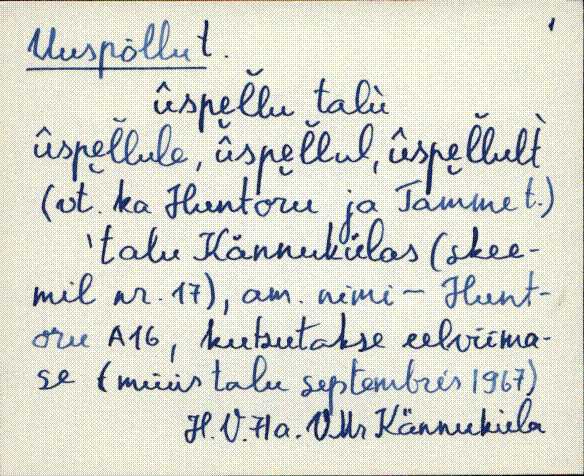 Uuspõllu t.
ûspe̮l̆lu talù
ûspe̮l̆lule, ûspe̮l̆lul, ûspe̮l̆lult̀
(vt. ka Huntoru ja Tamme t.)
'talu Kännukülas (skee-
mil nr. 17), am. nimi – Hunt-
oru A16, kutsutakse eelviima-
se (müüs talu septembris 1967)
H. V. Ha. VMr Kännuküla